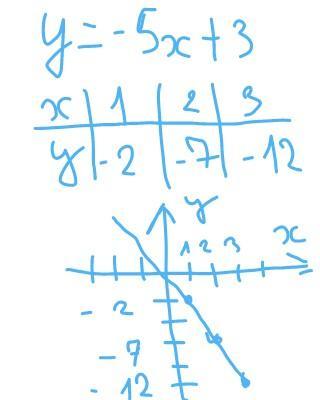 y = -5x + 3
x | 1 | 2 | 3
y | -2 | -7 | -12
y
1 2 3 x
- 2
- 7
- 12